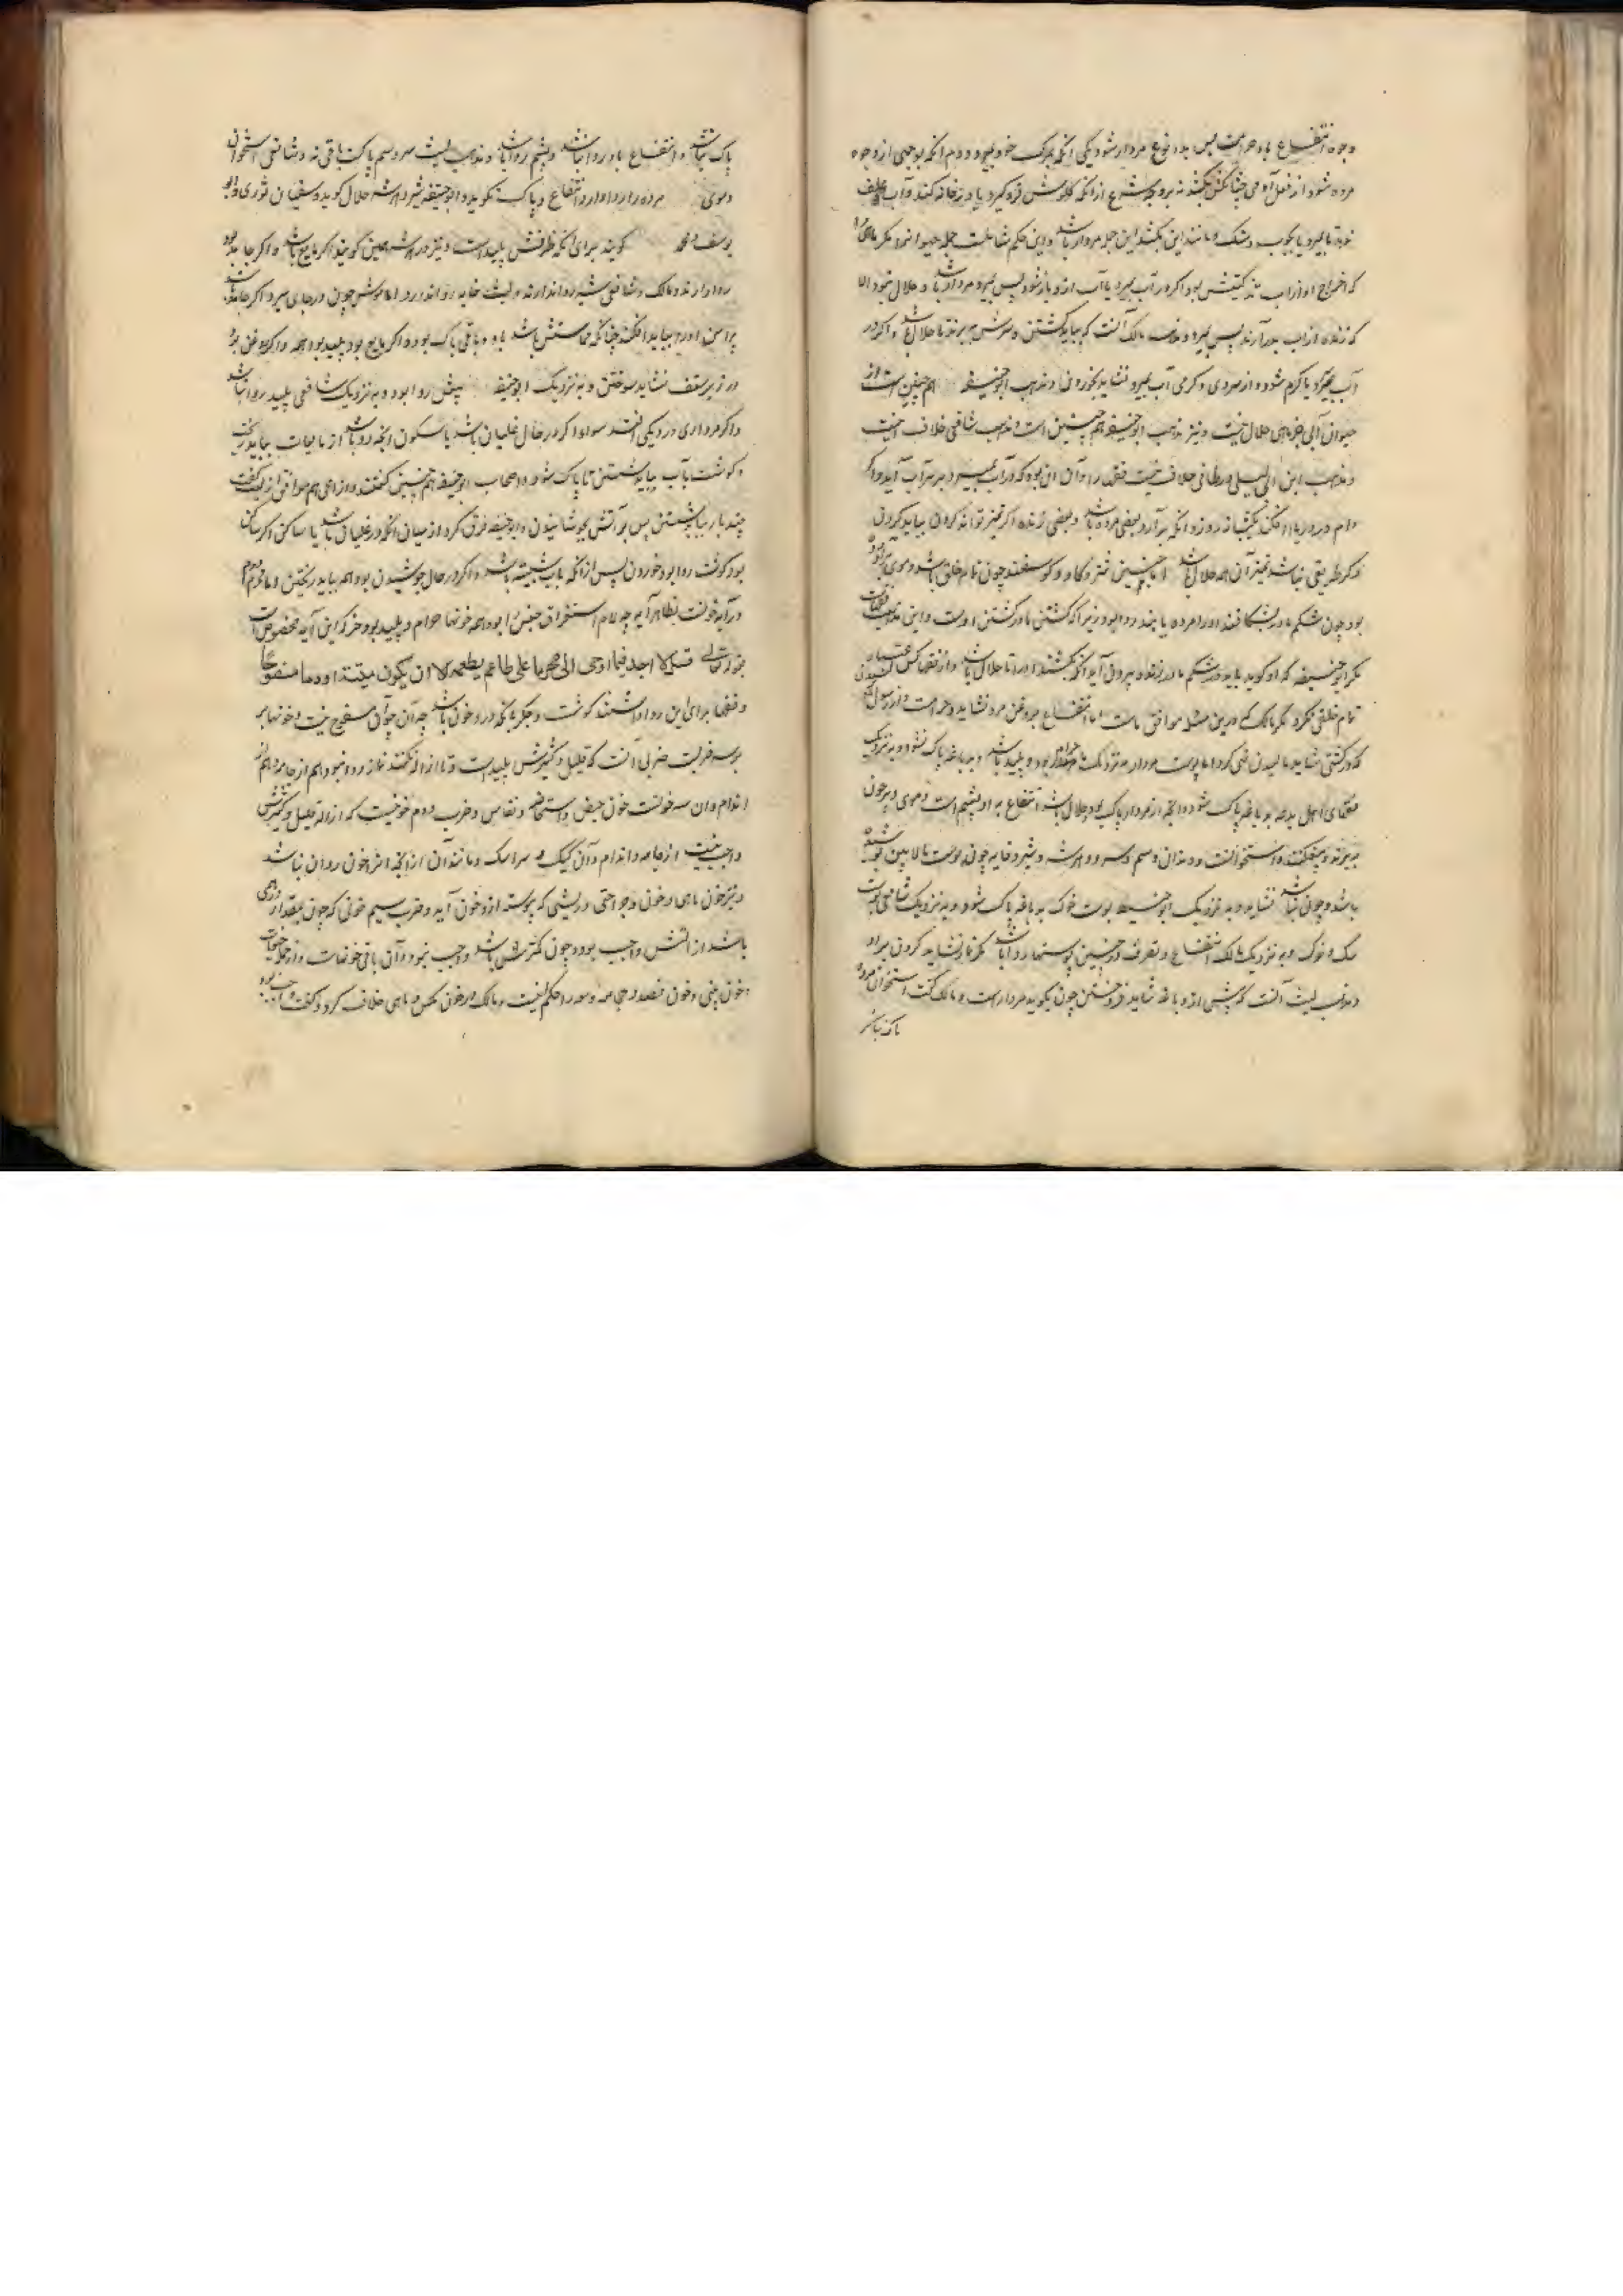 وجوه انتفاع باو حرامست پس بدو نوع مردار شود یکی آنکه بمرک خود بمیرد و دوم آنکه بموجبی از وجوه
مرده شود از فعل آدمی چنانکش بکشند نه بروجه شرع از آنکه کلوش فرو کیرد یا در خانه کند و آب و علف
ندهد تا بمیرد یا بچوب و سنک و مانند این بکشد این جمله مردار باشد و این حکم شاملست جمله حیوانرا مکر ماهی را
که اخراج او از آب تذکیتش بود اکر در آب بمیرد یا آب ازو باز شود پس بمیرد مردار باشد و حلال نبود الا
که زنده از آب بدر آرند پس بمیرد و مذهب مالک آنست که بباید کشتن و سرش ببریدن تا حلال باشد و اکر در
آب بمیرد یا کرم شود و از سردی و کرمی آب بمیرد نشاید بخوردن و مذهب ابوحنیفه همچنین است و از
حیوان آبی جز ماهی حلال نیست و نیز مذهب ابوحنیفه همچنین است و مذهب شافعی خلاف اینست
و مذهب ابن ابی لیلی در طافی خلاف نیست فقها را و آن آن بود که در آب بمیرد و بر سر آب آید و اکر
دام در دریا افکند یکشبانه روز و آنکه برآرد بعضی مرده باشد و بعضی زنده اکر تمیز تواند کردن بباید کردن
و اکر طریقی نباشد تمیز آن همه حلال باشد اما جنین شتر و کاو و کوسفند چون تام خلق باشد و موی برآورده
بود چون شکم مادر بشکافند او را مرده یابند روا بود زیرا که کشتن مادر کشتن اوست و این مذهب فقهاست
مکر ابوحنیفه که او کوید باید در شکم مادر زنده بیرون آید آنکه بکشند او را تا حلال باشد و از فقها کس اعتبار
تمام خلقی نکرد مکر مالک که درین مسئله موافق ماست اما انتفاع بروغن مردار نشاید و حرامست و از رسول
که در کشتی شاید مالیدن نهی کرد اما پوست مردار بنزدیک ما حرام بود و پلید باشد و بدباغه پاک نشود و بنزدیک
فقهای اهل بدعه بدباغه پاک شود و آنچه از مردار پاک بود و حلال باشد انتفاع به او پشم است و موی و پر چون
ببرند و بنیفکنند و استخوانست و دندان و سم و سرو و انفحه و شیر و خایه چون پوست بالایین
باشد و چون نباشد نشاید و به نزدیک ابوحنیفه پوست خوک بدباغه پاک شود و به نزدیک شافعی پوست
سک و خوک و به نزدیک مالک انتفاع و تصرف در چنین پوستها روا باشد مکر نماز نشاید کردن برو
و مذهب لیث آنست که پیش از دباغه شاید فروختن چون بکوید مردار است و مالک کفت استخوان مرده
پاک نباشد
پاک نباشد و انتفاع باو روا نباشد و پشم روا باشد و مذهب لیث سرو و سم پاکست باقی نه و شافعی استخوان
و موی مرده را روا ندارد انتفاع و پاک نکوید و ابوحنیفه شیر و انفحه حلال کوید و سفیان ثوری و ابو
یوسف و محمد کویند برای آنکه ظرفش پلید است و نیز در انفحه همین کویند اکر مایع باشد و اکر جامد بود
روا دارند و مالک و شافعی شیر روا ندارند و لیث خایه روا ندارد و اما موش چون در جای میرد اکر جامد باشد
پیرامن او را بباید افکند چنانکه مماسش باشد باو و باقی پاک بود و اکر مایع بود پلید بود همه و اکر روغن بود
در زیر سقف نشاید سوختن و به نزدیک ابوحنیفه بیعش روا بود و به نزدیک شافعی پلید روا نباشد
و اکر مرداری در دیکی افتد سواء اکر در حال غلیان باشد یا سکون آنچه درو باشد از مایعات بباید ریخت
و کوشت بآب بباید شستن تا پاک شود و اصحاب ابوحنیفه همچنین کفتند و اوزاعی هم موافق آن لیث کفت
چند بار بباید شستن پس بر آتش بجوشانیدن و ابوحنیفه فرق کرد از میان آنکه در غلیان باشد یا ساکن اکر ساکن
بود کوشت روا بود خوردن پس از آنکه بآب شسته باشد و اکر در حال جوشیدن بود همه بباید ریختن و ما حرم دوم
در آیه خونست بظاهر آیه چه لام استغراق جنس را بود همه خونها حرام و پلید بود جز که این آیه مخصوص است
بقول تعالی قل لا اجد فیما اوحی الی محرما علی طاعم یطعمه الا ان یکون میتة او دما مسفوحا
و فقها برای این روا داشتند کوشت و جکر با آنکه درو خون باشد چه آن خون مسفوح نیست و خونها بر
بر سه ضربست ضربی آنست که قلیل و کثیرش پلید است و تا ازاله نکنند نماز روا نبود هم از جامه و هم از
اندام و آن سه خونست خون حیض و استحاضه و نفاس و ضرب دوم خونیست که ازاله قلیل و کثیرش
واجب نیست از جامه و اندام و آن کیک و سراسک و مانند آن از آنچه او را خون روان نباشد
و نیز خون ماهی و خون جراحتی و ریشی که پیوسته ازو خون آید و ضرب سیم خونی که چون بمقدار درهمی
باشد ازالتش واجب بود و چون کمترش باشد واجب نبود و آن باقی خونهاست و از جمله حیوانات
خون بینی و خون فصد و حجامه و همه را حکم اینست و مالک در خون مکس و ماهی خلاف کرد و کفت واجب بود